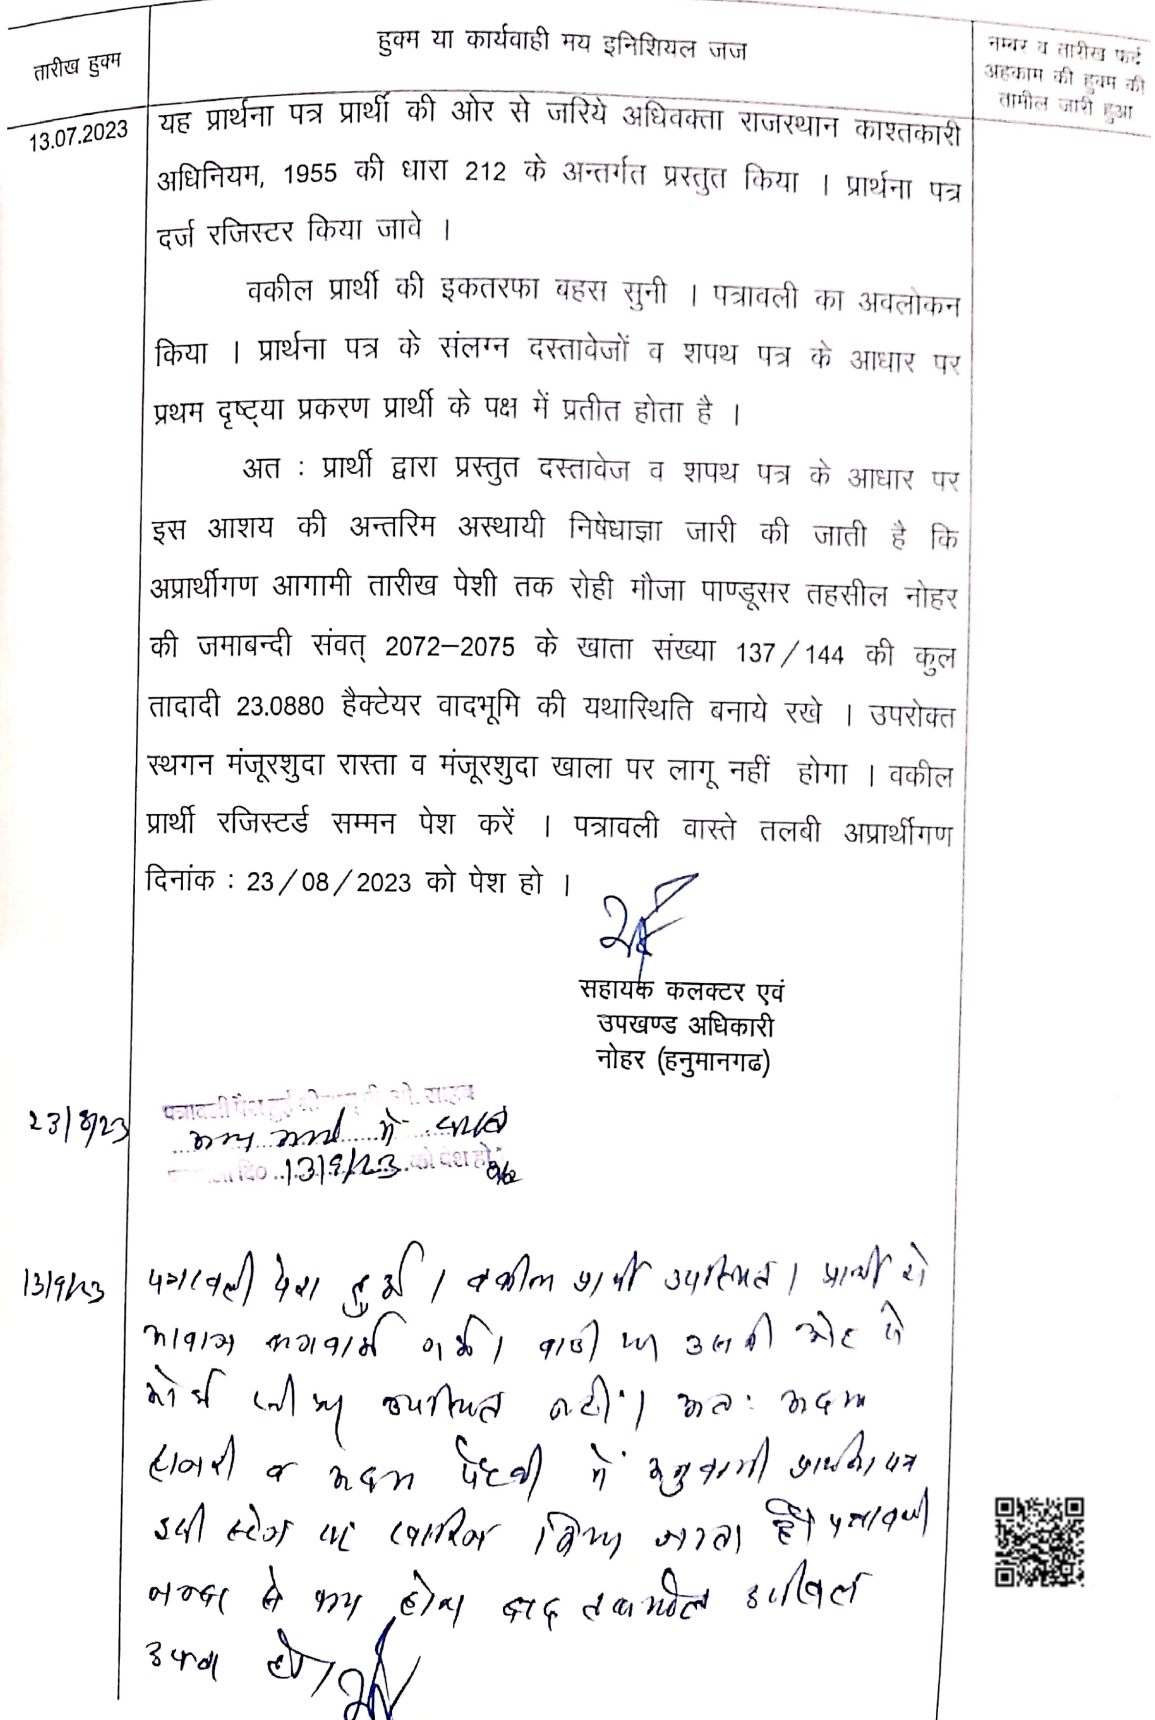 तारीख हुक्म
हुक्म या कार्यवाही मय इनिशियल जज
नम्बर व तारीख फर्द
अहकाम की हुक्म की
तामील जारी हुआ
13.07.2023
यह प्रार्थना पत्र प्रार्थी की ओर से जरिये अधिवक्ता राजस्थान काश्तकारी
अधिनियम, 1955 की धारा 212 के अन्तर्गत प्रस्तुत किया । प्रार्थना पत्र
दर्ज रजिस्टर किया जावे ।
वकील प्रार्थी की इकतरफा बहस सुनी । पत्रावली का अवलोकन
किया । प्रार्थना पत्र के संलग्न दस्तावेजों व शपथ पत्र के आधार पर
प्रथम दृष्ट्या प्रकरण प्रार्थी के पक्ष में प्रतीत होता है ।
अत : प्रार्थी द्वारा प्रस्तुत दस्तावेज व शपथ पत्र के आधार पर
इस आशय की अन्तरिम अस्थायी निषेधाज्ञा जारी की जाती है कि
अप्रार्थीगण आगामी तारीख पेशी तक रोही मौजा पाण्डूसर तहसील नोहर
की जमाबन्दी संवत् 2072–2075 के खाता संख्या 137/144 की कुल
तादादी 23.0880 हैक्टेयर वादभूमि की यथास्थिति बनाये रखे । उपरोक्त
स्थगन मंजूरशुदा रास्ता व मंजूरशुदा खाला पर लागू नहीं होगा । वकील
प्रार्थी रजिस्टर्ड सम्मन पेश करें । पत्रावली वास्ते तलबी अप्रार्थीगण
दिनांक : 23/08/2023 को पेश हो ।
सहायक कलक्टर एवं
उपखण्ड अधिकारी
नोहर (हनुमानगढ)
23/8/23
पत्रावली पेश हुई
अन्य कार्य में व्यस्त
13/9/23 को पेश हो
13/9/23
पत्रावली पेश हुई । वकील प्रार्थी उपस्थित । प्रार्थी को
आवाज लगवाई गई । वादी या उसकी ओर से
कोई उपस्थित नहीं । अतः अदम
हाजरी व अदम पैरवी में प्रार्थना पत्र
इसी स्टेज पर खारिज किया जाता है । पत्रावली
नम्बर से कम होकर बाद तकमील दाखिल
दफ्तर हो ।